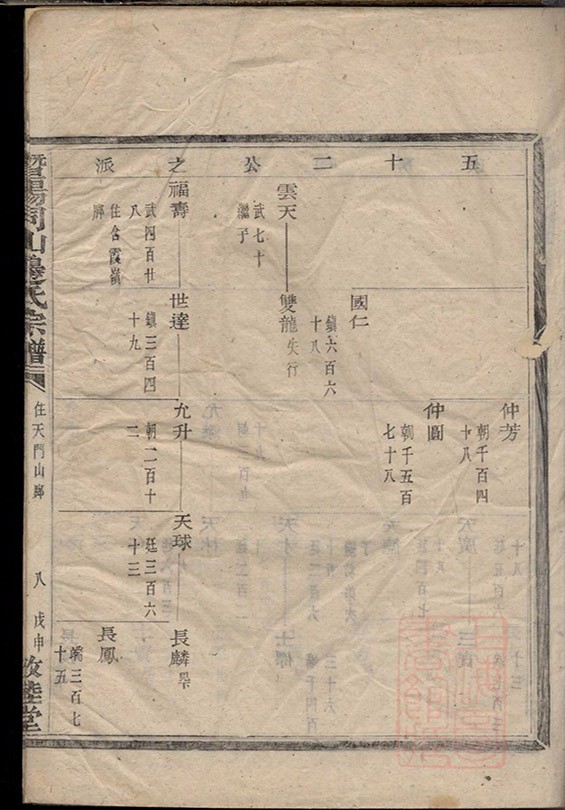 五十二公之派
仲芳
朝千百四
十八
國仁
仲圓
朝千五百
七十八
雲天
雙龍失行
鎮六百六
十八
武七十
繼子
福壽
世達
允升
天球
長麟早卒
武四百廿
八
住含霞嶺
廓
鎮三百四
十九
朝二百十
二
廷三百六
十三
長鳳
端三百七
十五
宗譜
住天門山廓
八
戊申
敦睦堂